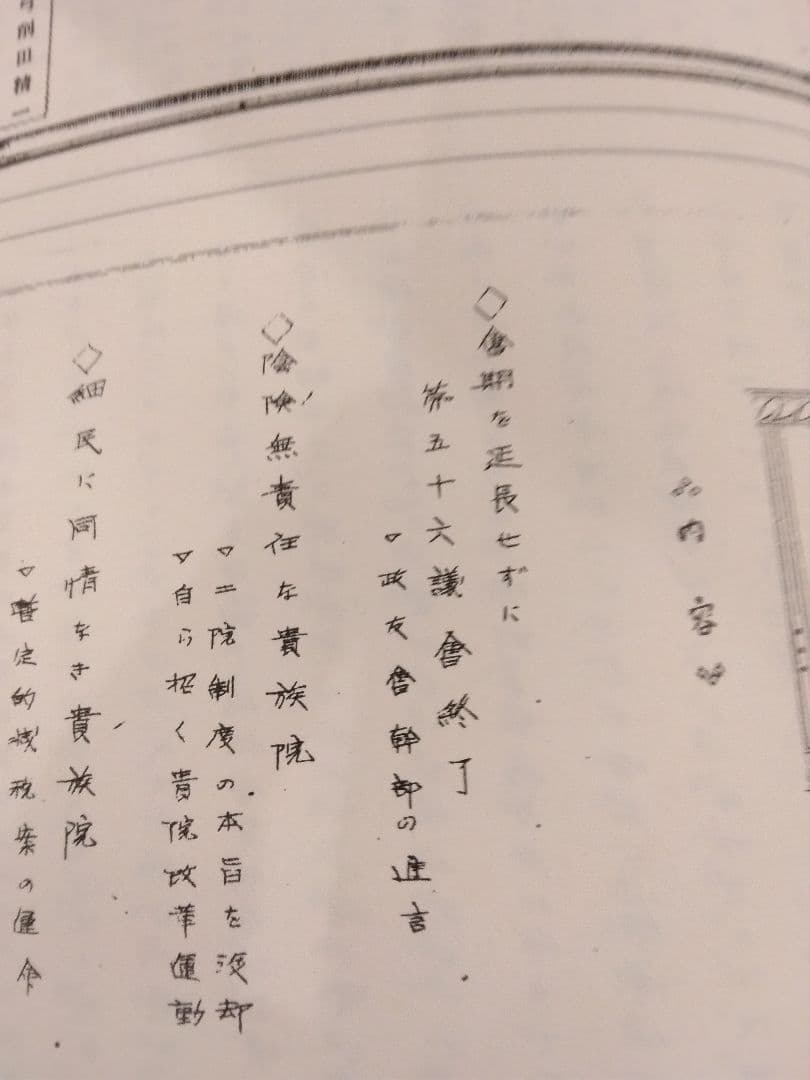 内容
◇會期を延長せずに
第五十六議會終了
▽政友會幹部の進言
◇陰険無責任な貴族院
▽二院制度の本旨を没却
▽自ら招く貴院改革運動
◇細民に同情なき貴族院
▽暫定的減税案の運命
前田精一